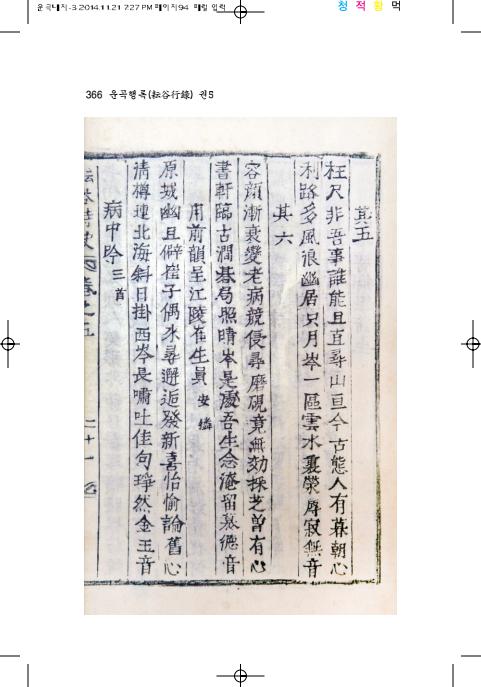 운곡대지-3 2014.11.21 7:27 PM 페이지94 매킬 입력
청 적 황 먹
366 운곡행록(耘谷行錄) 권5
其五
枉尺非吾事誰能且直尋山亘今古態人有暮朝心
利路多風浪幽居只月岑一區雲水裏榮辱寂無音
其六
容顔漸衰變老病競侵尋磨硯竟無効採芝曾有心
書軒臨古澗碁局照晴岑是處吾生念淹留慕德音
用前韻呈江陵崔生員 安繗
原城幽且僻崔子偶來尋邂逅發新喜怡愉論舊心
淸樽連北海斜日掛西岑長嘯吐佳句琤然金玉音
病中吟 三首
耘谷詩史 卷之五 二十一